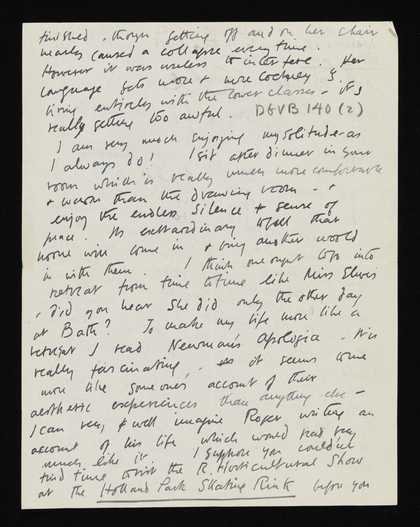 finished, though getting off and on her chair
nearly caused a collapse every time.
However it was useless to interfere. Her
language gets more & more Cockney &
living entirely with the lower classes - it's
really getting too awful. DGVB 140 (2)
I am very much enjoying my solitude as
I always do! I sit after dinner in your
room which is really much more comfortable
& warm than the drawing room - &
enjoy the endless silence & sense of
peace. It's extraordinary to feel that
noone will come in & bring another world
in with them. I think one ought to go into
retreat from time to time like Miss
, did you hear she did only the other day
at Bath? To make my life more like a
retreat I read Newman's Apologia. It is
really fascinating, it seems some
more like someone's account of their
aesthetic experiences than anything else -
I can very well imagine Roger writing an
account of his life which would read very
much like it. I suppose you couldn't
find time to visit the R. Horticultural Show
at the Holland Park Skating Rink before you